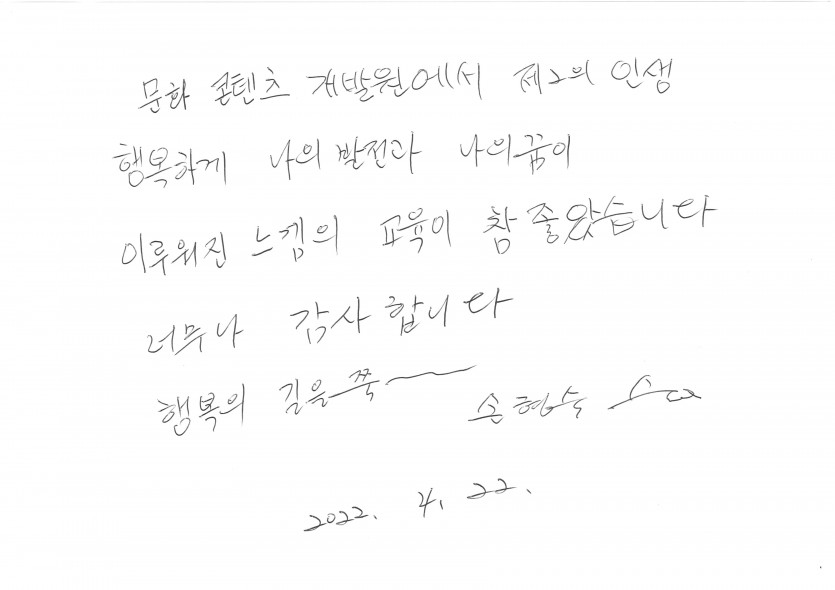 문화 콘텐츠 개발원에서 제2의 인생
행복하게 나의 발전과 나의꿈이
이루워진 느낌의 교육이 참 좋았습니다
너무나 감사합니다
행복의 길을 쭉~
손현숙
2022. 4. 22.